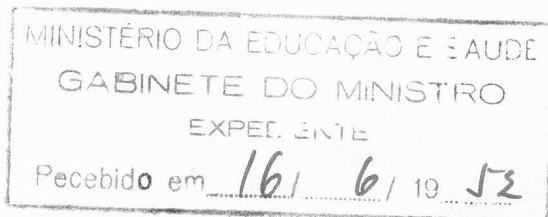 MINISTÉRIO DA EDUCAÇÃO E SAUDE
GABINETE DO MINISTRO
EXPEDIENTE
Recebido em 16/ 6/ 19 52